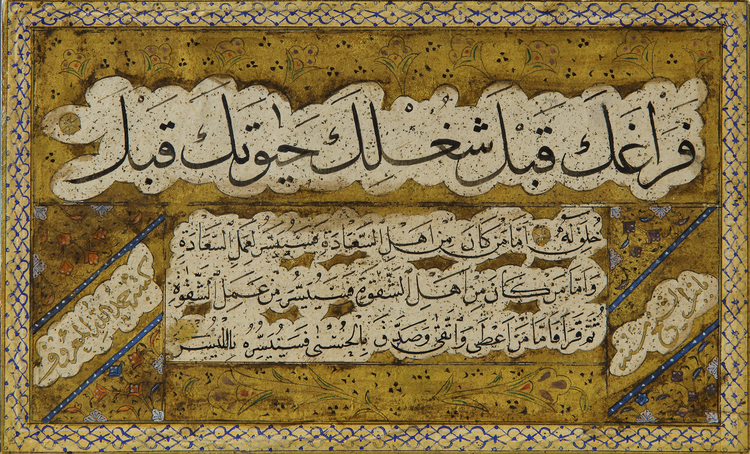 فراغك قبل شغلك حيوتك قبل
خلق له اما من كان من اهل السعادة فسييسر لعمل السعادة
واما من كان من اهل الشقوة فسييسر من عمل الشقوة
ثم قرا فاما من اعطى واتقى وصدق بالحسنى فسنيسره لليسر